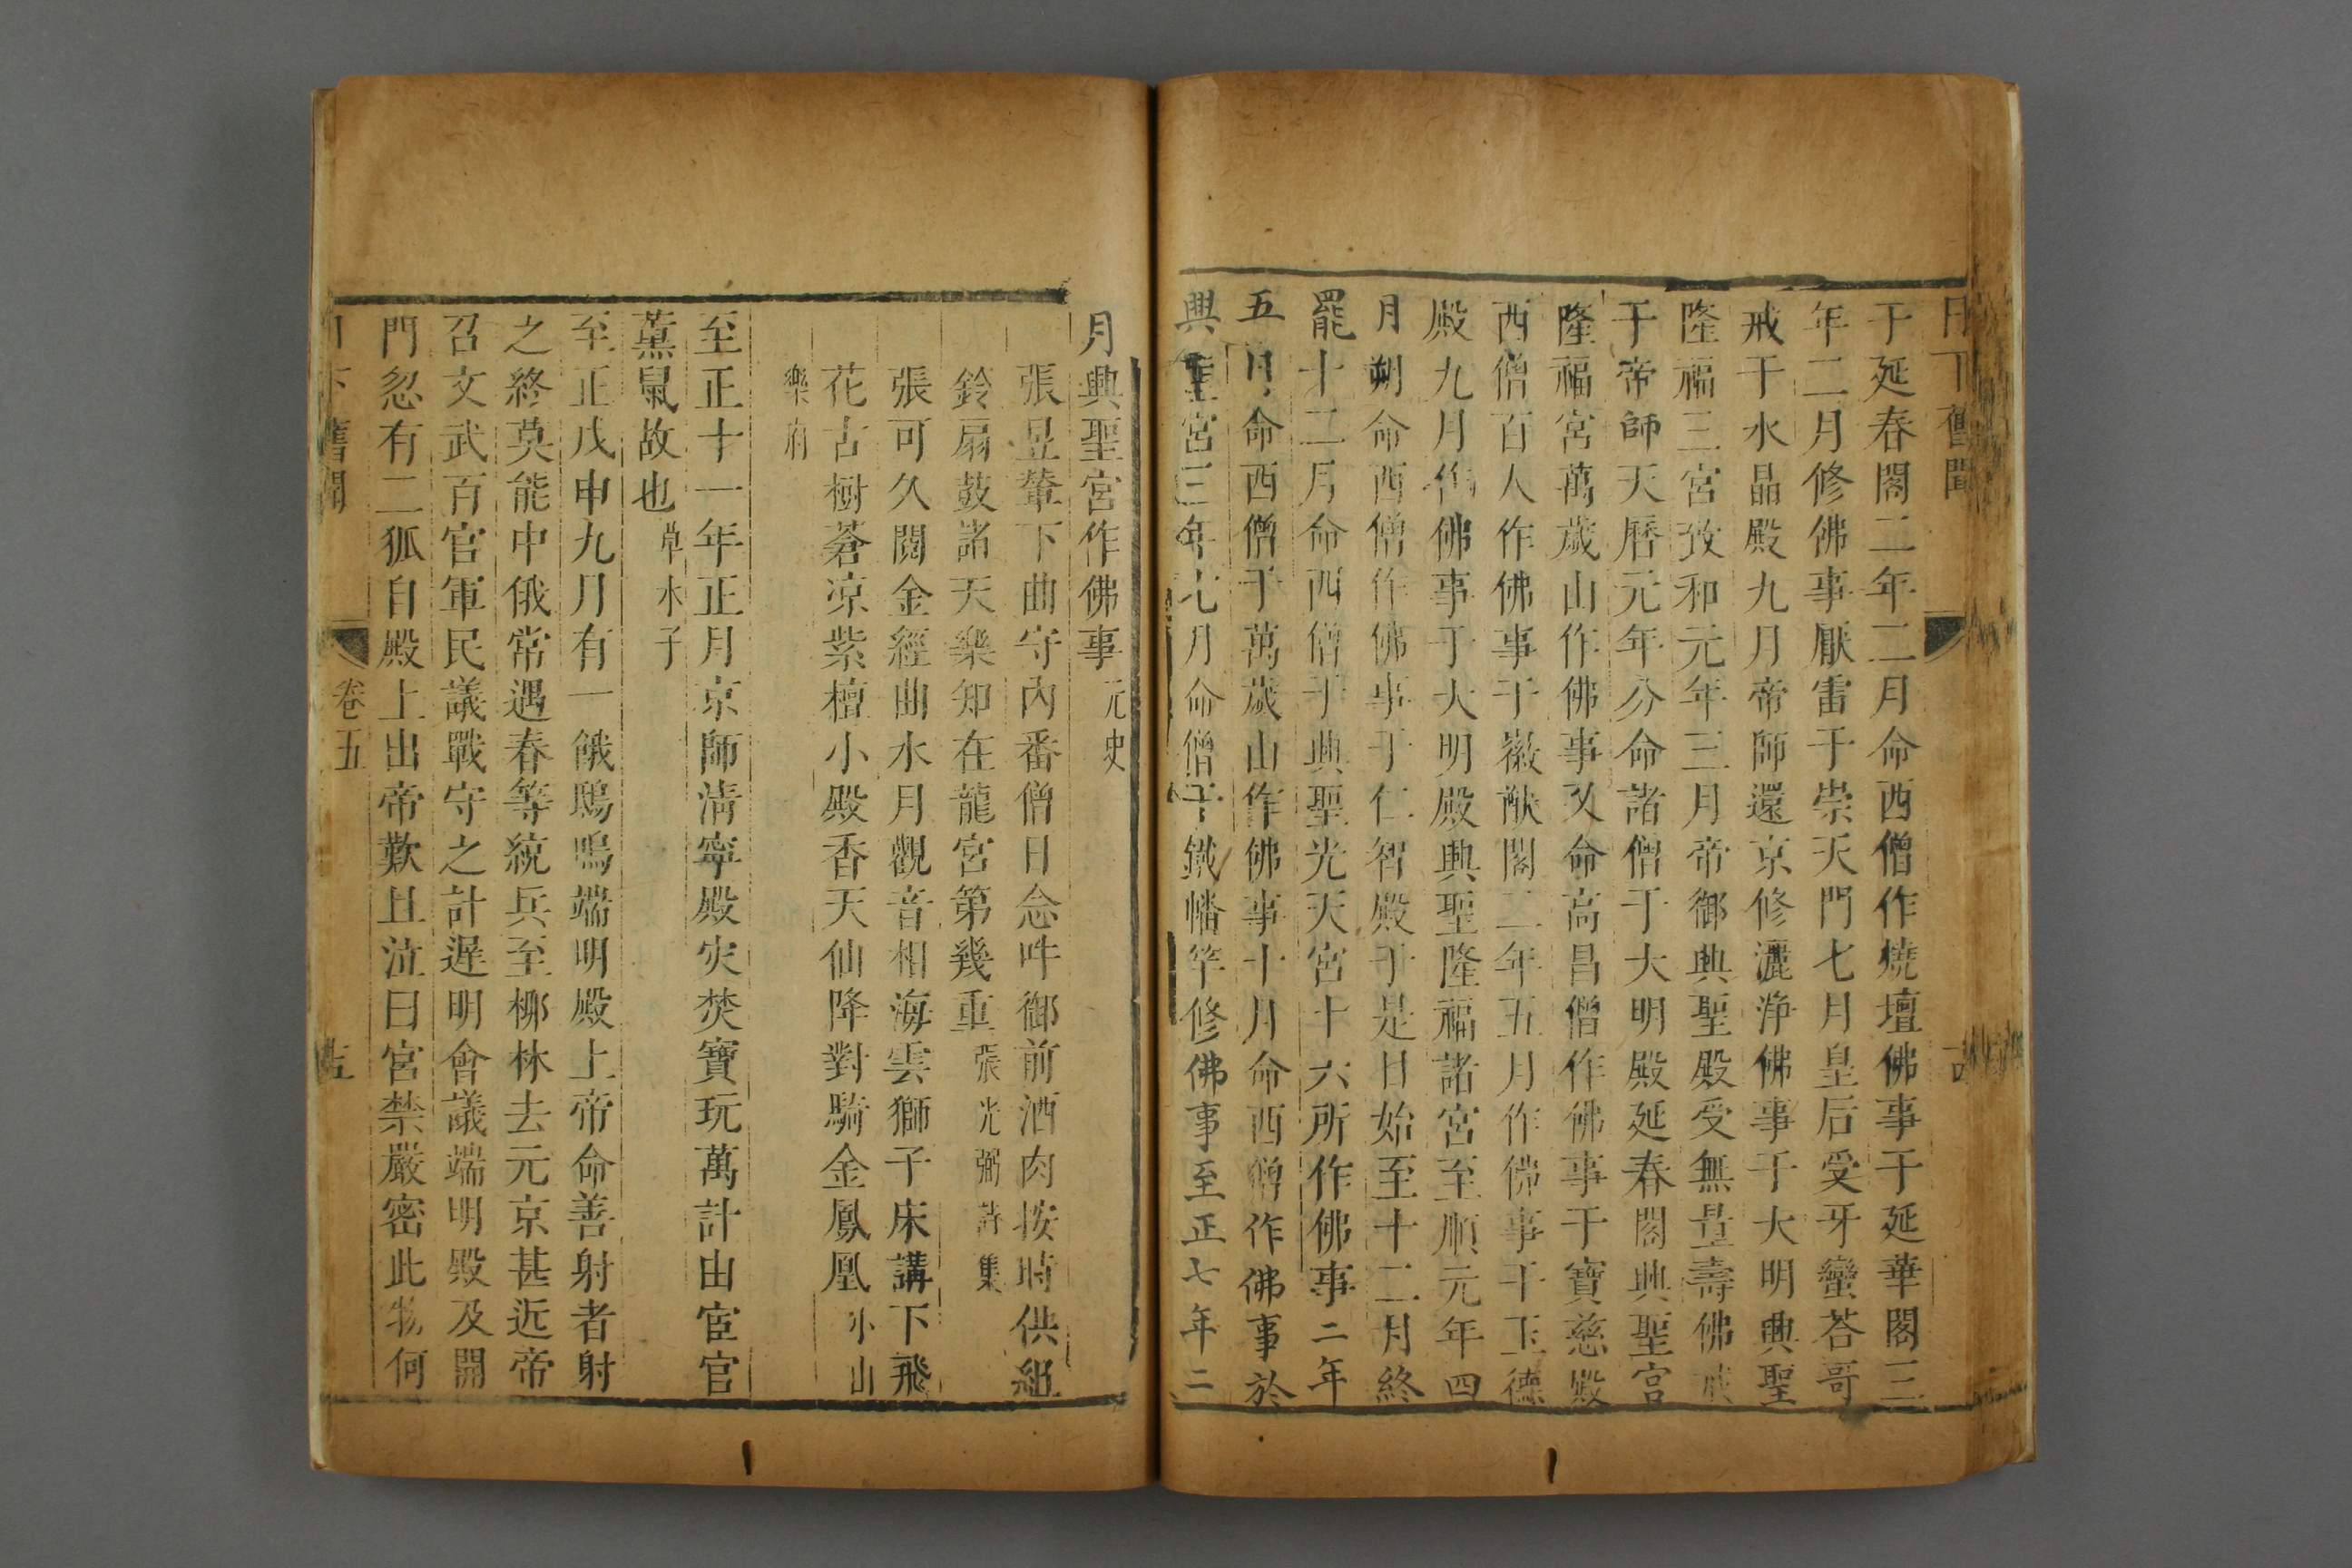 日下舊聞
于延春閣二年二月命西僧作燒壇佛事于延華閣三
年二月修佛事厭雷于崇天門七月皇后受牙蠻荅哥
戒于水晶殿九月帝師還京修灑淨佛事于大明興聖
隆福三宮致和元年三月帝御興聖殿受無量壽佛戒
于帝師天曆元年分命諸僧于大明殿延春閣興聖宮
隆福宮萬歲山作佛事又命高昌僧作佛事于寶慈殿
西僧百人作佛事于徽猷閣二年五月作佛事于玉德
殿九月作佛事于大明殿興聖隆福諸宮至順元年四
月朔命西僧作佛事于仁智殿于是日始至十二月終
罷十二月命西僧于興聖光天宮十六所作佛事二年
五月命西僧于萬歲山作佛事十月命西僧作佛事於
興聖宮三年七月命僧于鐵幡竿修佛事至正七年二
月興聖宮作佛事元史
張昱輦下曲守內番僧日念吽御前酒肉按時供組
鈴扇鼓諸天樂知在龍宮第幾重張光弼詩集
張可久閱金經曲水月觀音相海雲獅子床講下飛
花古樹蒼凉紫檀小殿香天仙降對騎金鳳凰小山
樂府
至正十一年正月京師清寧殿灾焚寶玩萬計由宦官
薰鼠故也草木子
至正戊申九月有一餓鴟鳴端明殿上帝命善射者射
之終莫能中俄常遇春等統兵至栁林去元京甚近帝
召文武百官軍民議戰守之計遲明會議端明殿及開
門忽有二狐自殿上出帝歎且泣曰宮禁嚴密此物何
日下舊聞 卷五